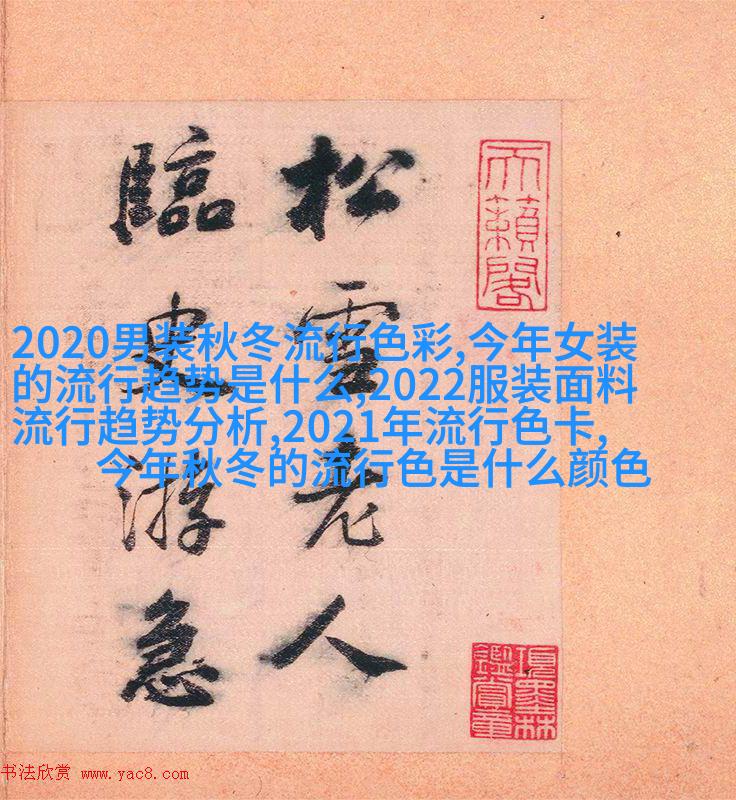 天籟閣
松雪老人
臨史游急
項墨林
鑑賞章
2020男装秋冬流行色彩,今年女装
的流行趋势是什么,2022服装面料
流行趋势分析,2021年流行色卡,
今年秋冬的流行色是什么颜色
书法欣赏 www.yac8.com